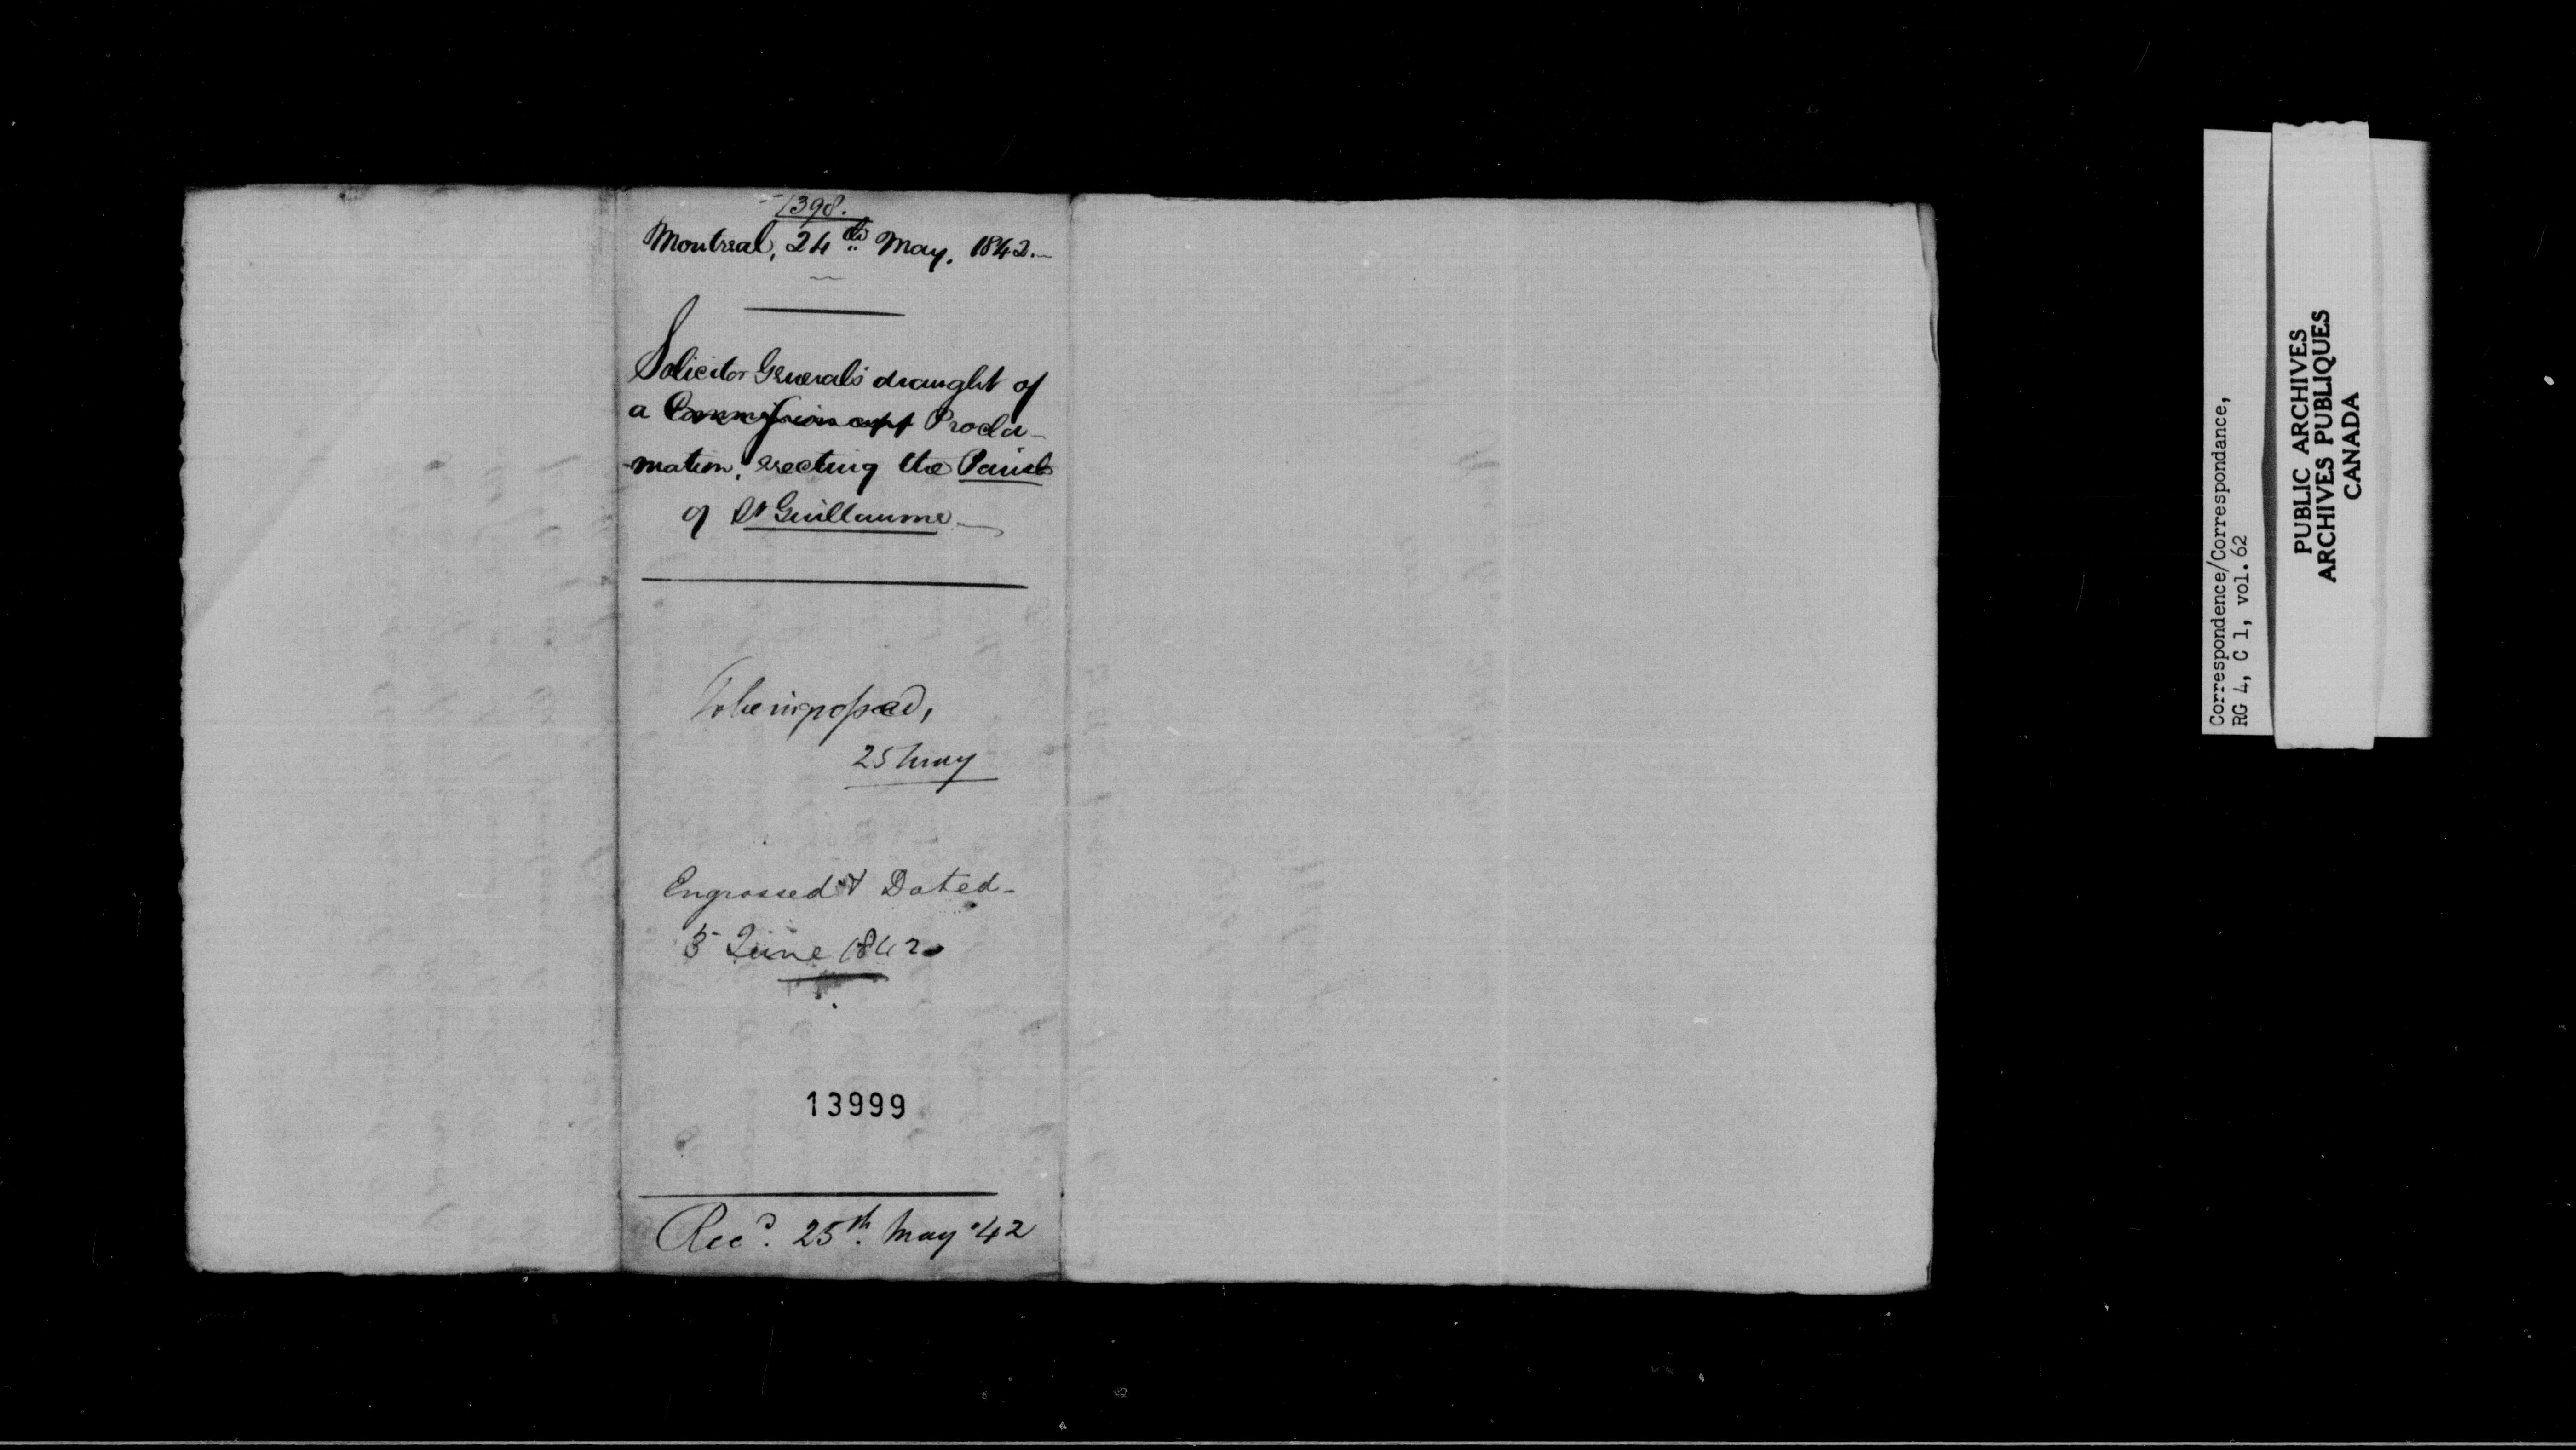 1398.
Montreal, 24th May, 1842.
Solicitor General's draught of
a Commission app Procla-
-mation, erecting the Parish
of St Guillaume
To be ingrossed,
25 May
Engrossed & Dated-
3 June 1842
13999
Recd. 25th. May '42
Correspondence/Correspondance,
RG 4, C 1, vol. 62
PUBLIC ARCHIVES
ARCHIVES PUBLIQUES
CANADA